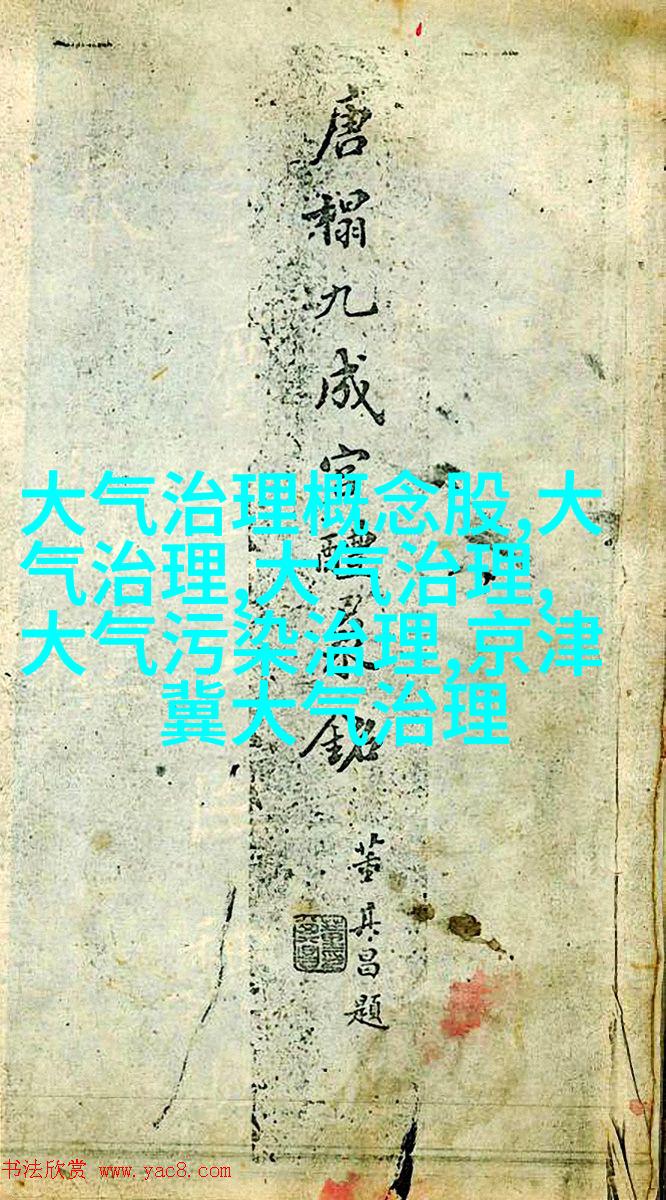 唐榻九成宮醴泉銘
董其昌題
大气治理概念股,大
气治理,大气治理,
大气污染治理,京津
冀大气治理
书法欣赏 www.yac8.com